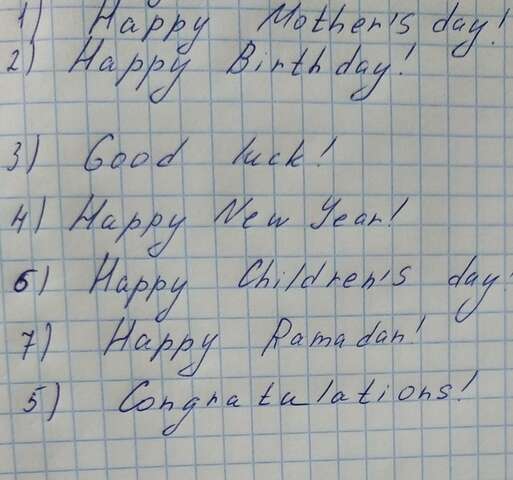 1) Happy Mother's day!
2) Happy Birthday!
3) Good luck!
4) Happy New Year!
6) Happy Children's day!
7) Happy Ramadan!
5) Congratulations!